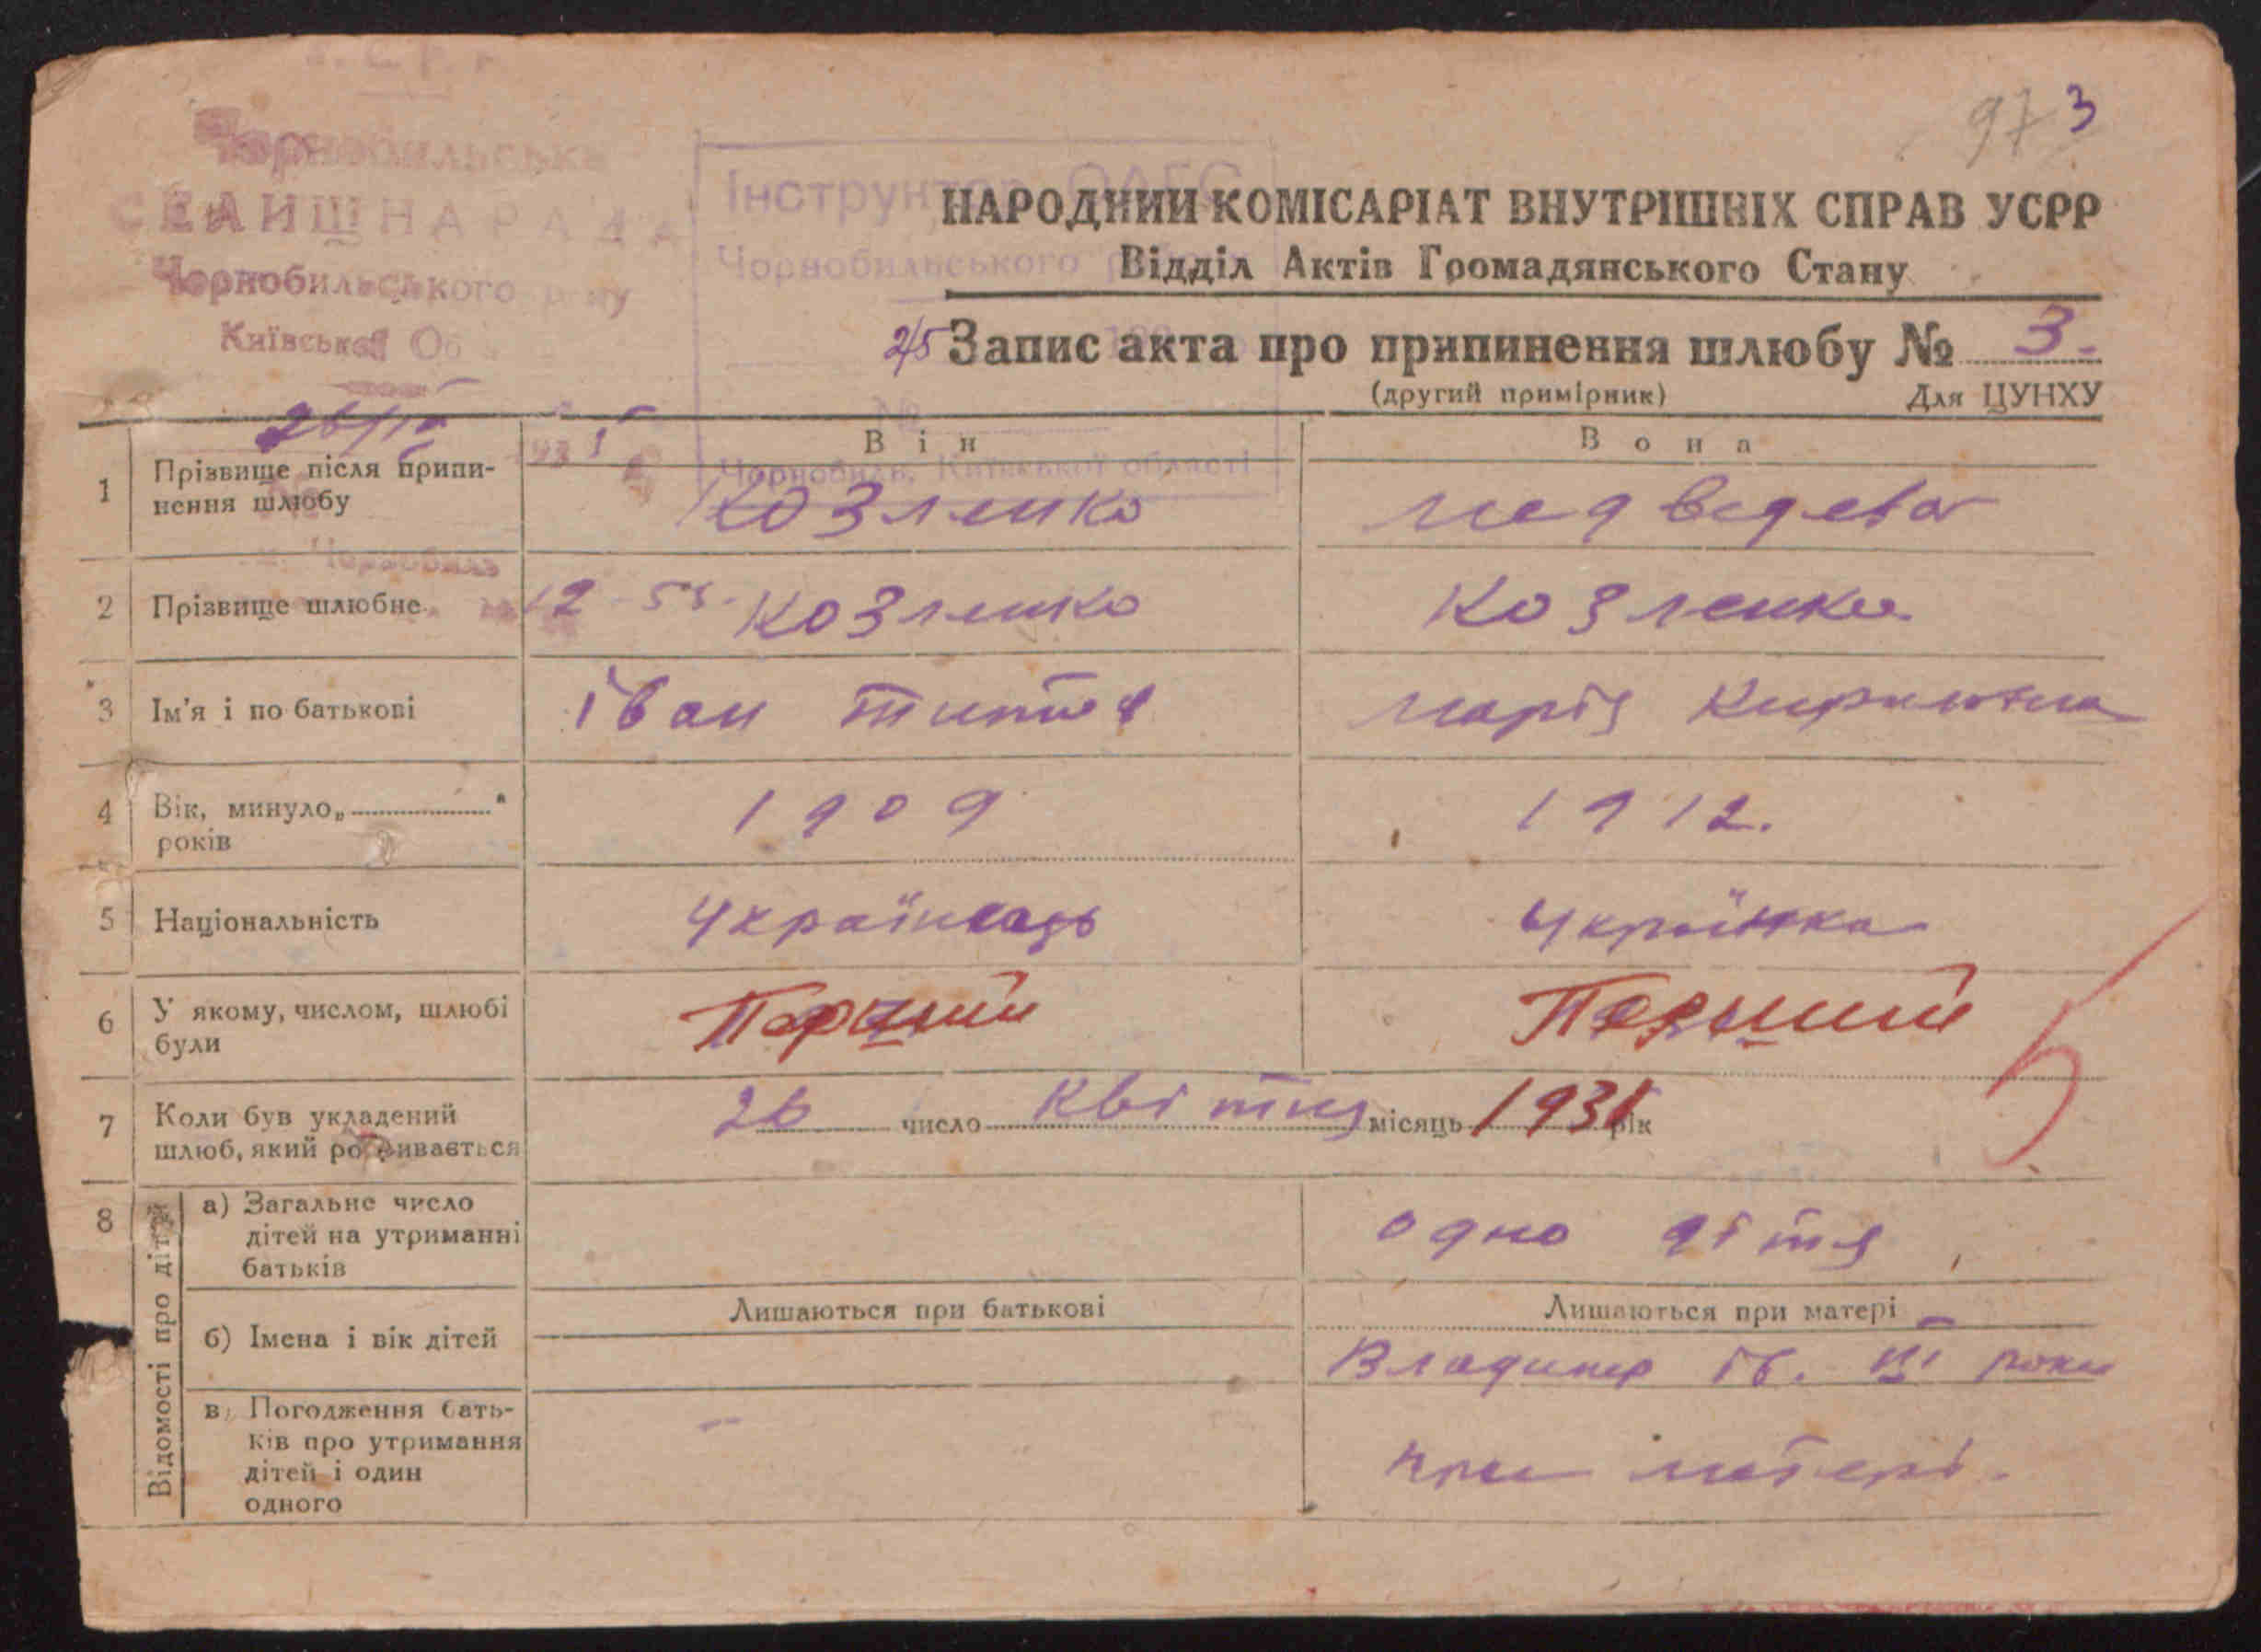 97 3
Чорнобильська
СЕЛИЩНА РАДА
Чорнобильського р-ну
Київської Об
Інструктор ОАГС
Чорнобильського
Чорнобиль, Київської області
НАРОДНИЙ КОМІСАРІАТ ВНУТРІШНІХ СПРАВ УСРР
Відділ Актів Громадянського Стану
25 Запис акта про припинення шлюбу № 3.
(другий примірник) Для ЦУНХУ
Він Вона
1 Прізвище після припи-
нення шлюбу
Козленко Медведева
2 Прізвище шлюбне 12-55. Козленко Козленко
3 Ім'я і по батькові Іван Марія
4 Вік, минуло „ "
років
1909 1912.
5 Національність Українець Українка
6 У якому, числом, шлюбі
були
Перший Перший
7 Коли був укладений
шлюб, який розривається
26 число квітня місяць 1931 рік
8 Відомості про дітей
а) Загальне число
дітей на утриманні
батьків
одно дітя
Лишаються при батькові Лишаються при матері
б) Імена і вік дітей Владимир Ів. III роки
в) Погодження бать-
ків про утримання
дітей і один
одного
при матері.